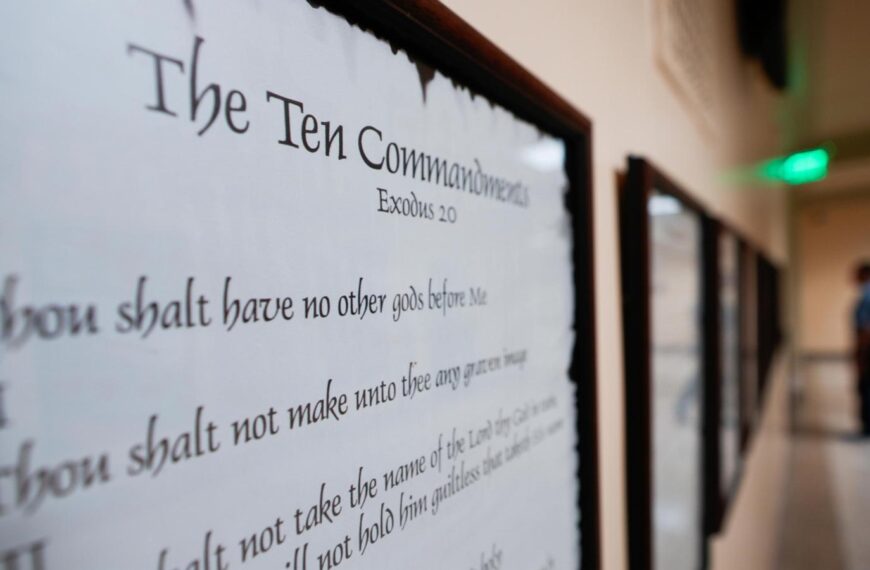 The Ten Commandments
Exodus 20
Thou shalt have no other gods before Me
Thou shalt not make unto thee any graven image
II
shalt not take the name of the Lord thy God in vain,
will not hold him guiltless that taketh His name
holy